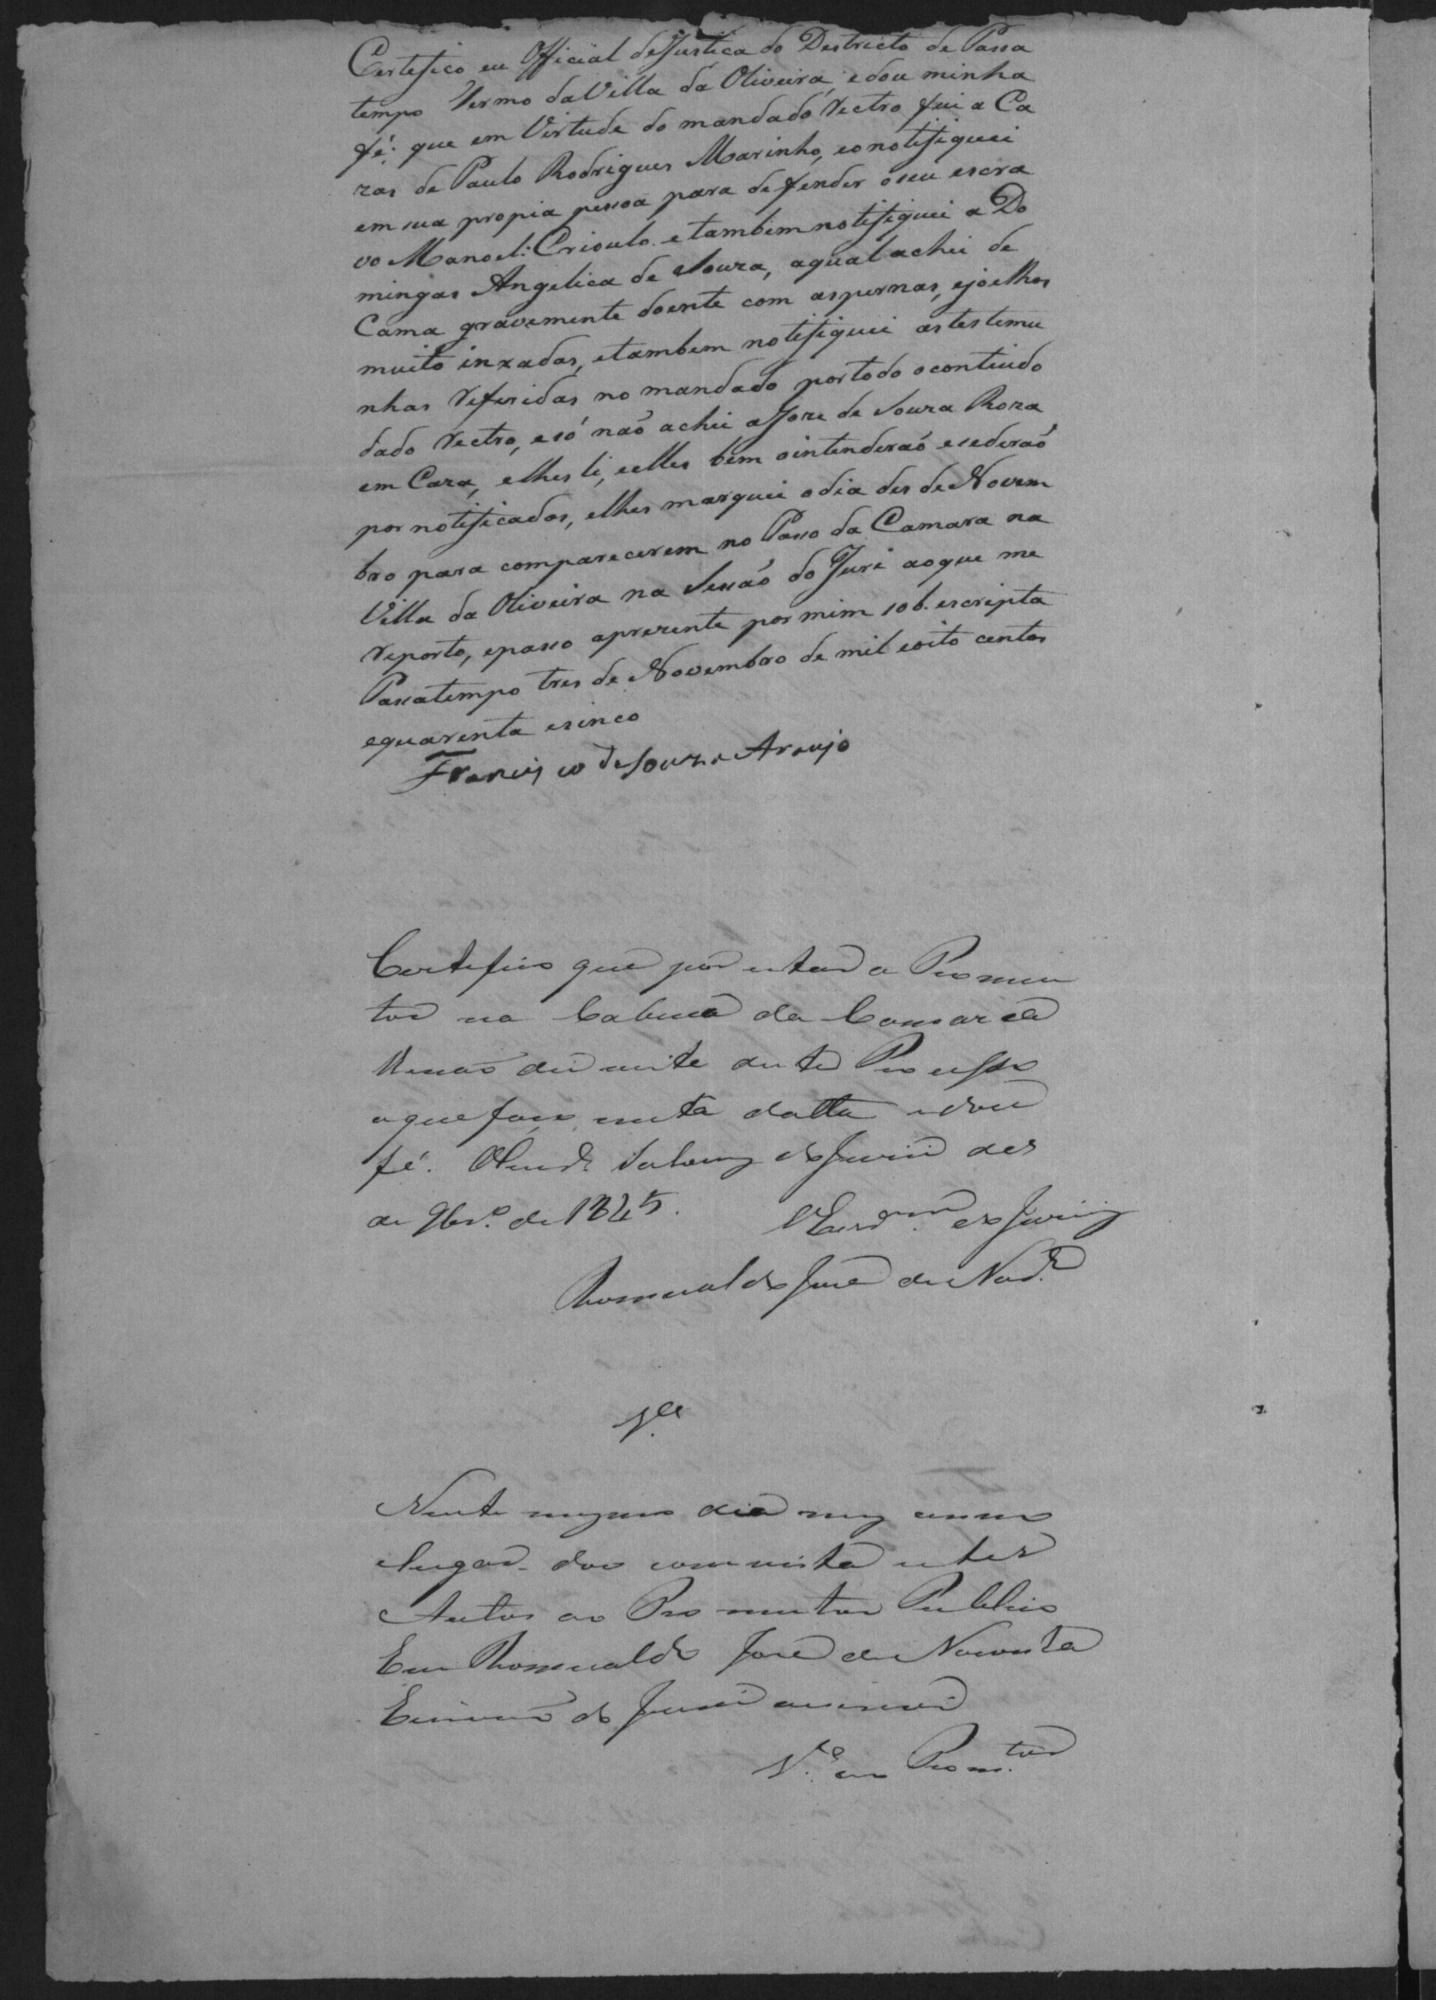 Certefico eu Official deJustica do Destricto de Passa
tempo Termo daVilla da Oliveira, edou minha
fé; que em Virtude do mandado rectro fui a Ca
zas de Paulo Rodrigues Marinho, eonotifiquei
em sua propia pessoa para defender oseu escra
vo Manoel Crioulo. etambem notifiquei a Do
mingas Angelica de Souza, aqual achei de
Cama gravemente doente com aspernas, ejoelhos
muito inxadas, etambem notifiquei astestemu
nhas referidas no mandado portodo ocontiudo
dado rectro, esó não achei aJoze de Souza Roza
em Caza, elhes li, eelles bem ointenderaõ esederaõ
por notificados, elhes marquei odia des de Novem
bro para comparecerem no Passo da Camara na
Villa da Oliveira na Sessaõ do Juri aoque me
reporto, epasso aprezente por mim sob.escripta
Passatempo tres de Novembro de mil eoito centos
equarenta esinco
Francisco de Souza Araujo
Certefico que por estar o Promu
tor na Cabeça da Comarca
deste Processo
oque faço nesta datta edou
fé. do Jurii des
de 9br.º de 1845.
do Jurii
Romualdo José de Nor.ª
V.ta
Neste mesmo dia mes anno
elugar dou com vista estes
Autos ao Promutor Publico
Eu Romualdo José de Noronha
Escrivão do Jurii oescrevi
V.ta ao Prom.tor